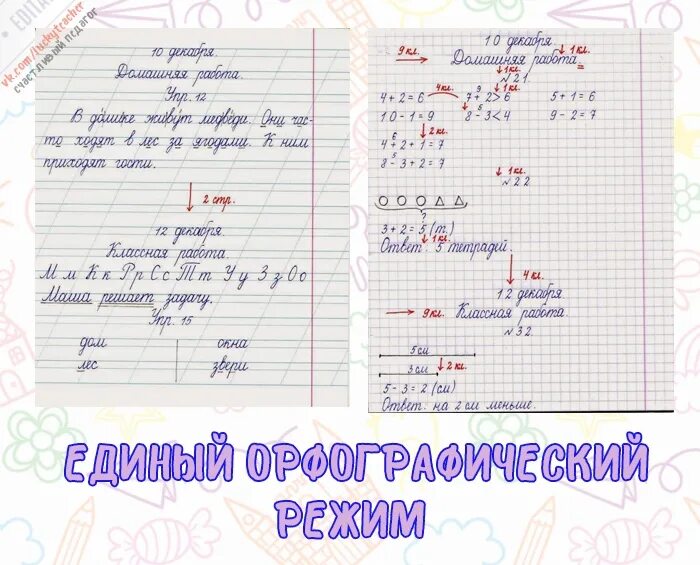 vk.com/luckyteacher
счастливый педагог
10 декабря.
Домашняя работа.
Упр. 12
В домике живут медведи. Они час-
то ходят в лес за ягодами. К ним
приходят гости.
2 стр.
12 декабря.
Классная работа.
М м К к Р р С с Т т У у З з О о
Маша решает задачу.
Упр. 15
дом окна
лес звери
10 декабря.
1 кл.
9 кл. Домашняя работа.
1 кл.
№21.
4 кл. 9 1 кл.
4+2=6 7+2>6 5+1=6
5
10-1=9 8-3<4 9-2=7
6 2 кл.
4+2+1=7
5
8-3+2=7
1 кл.
№22
?
3+2=5 (т.)
1 кл.
Ответ: 5 тетрадей.
4 кл.
12 декабря.
9 кл. Классная работа.
№32
5 см
3 см 2 кл.
5-3=2 (см)
Ответ: на 2 см меньше.
ЕДИНЫЙ ОРФОГРАФИЧЕСКИЙ
РЕЖИМ